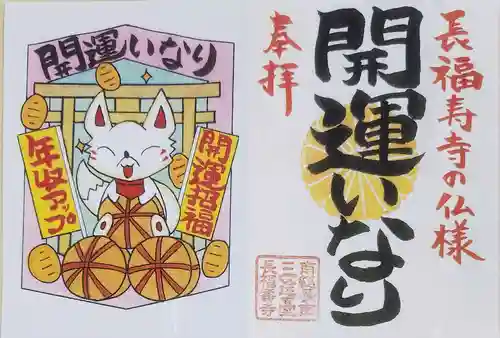 開運いなり
年収アップ
開運招福
奉拝
開運いなり
長福寿寺の仏様
長福壽寺